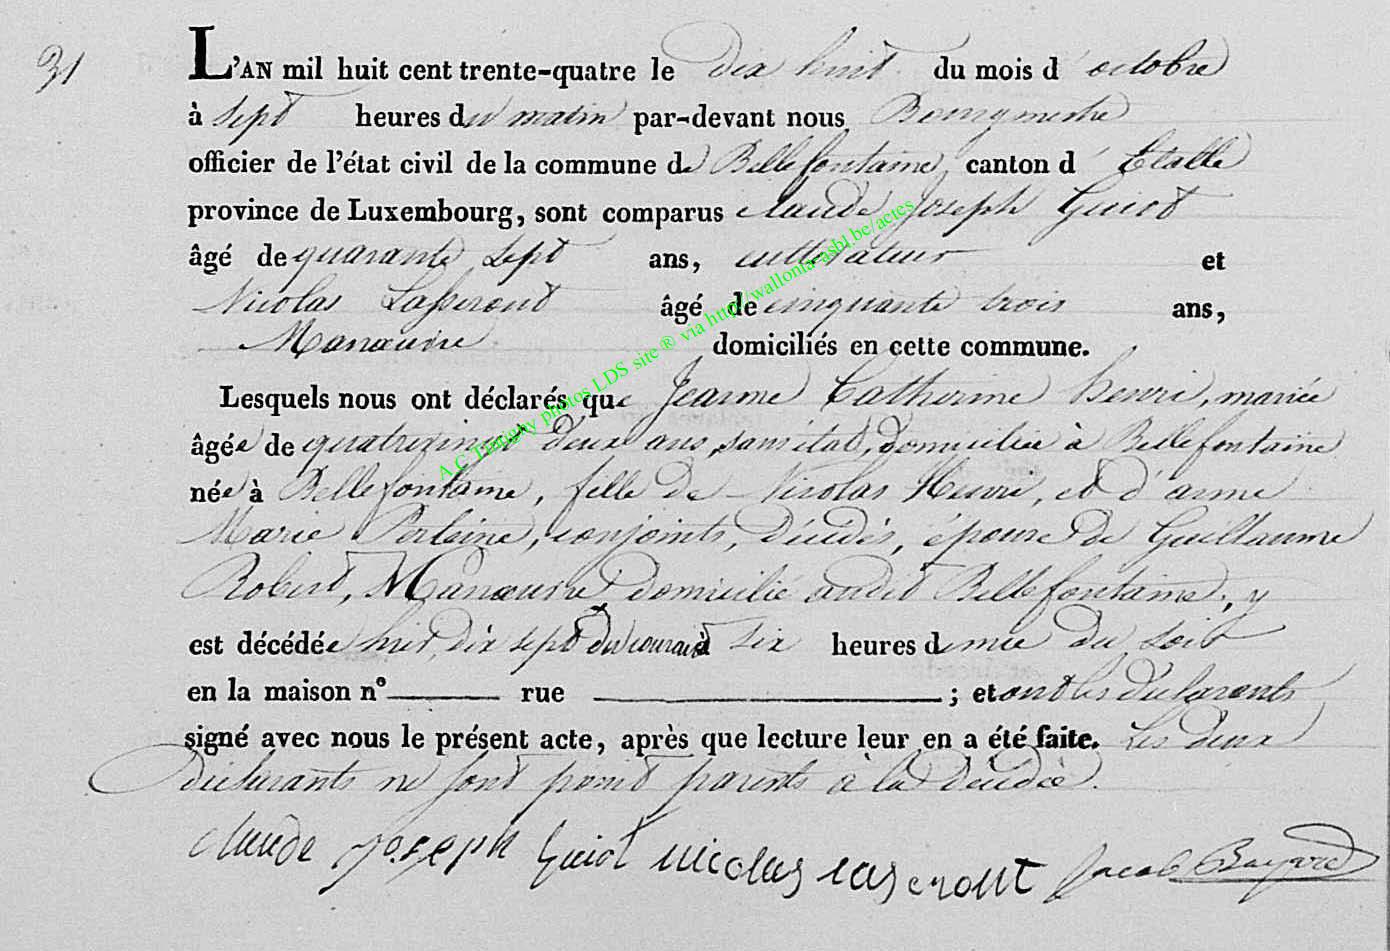 31
L'AN mil huit cent trente-quatre le dix huit du mois d'octobre
à sept heures du matin par-devant nous Bourgmestre
officier de l'état civil de la commune de Bellefontaine, canton d'Etalle
province de Luxembourg, sont comparus claude joseph Guiot
âgé de quarante sept ans, cultivateur et
Nicolas Lasseront âgé de cinquante trois ans,
Manœuvre domiciliés en cette commune.
Lesquels nous ont déclarés que Jeanne Catherine henri, mariée
âgée de quatrevingt deux ans, sans état, domiciliée à Bellefontaine
née à Bellefontaine, fille de Nicolas Henri, et d'anne
Marie Perleine, conjoints, décédés, épouse de Guillaume
Robert, Manœuvre domicilié audit Bellefontaine, y
est décédée hier, dix sept du courant à six heures demie du soir
en la maison n° rue ; et ont les déclarants
signé avec nous le présent acte, après que lecture leur en a été faite. Les deux
déclarants ne sont point parents à la décédée.
claude joseph Guiot nicolas laseront Jacob Bayard
A.C Tintigny photos LDS site ® via http://wallonia-asbl.be/actes